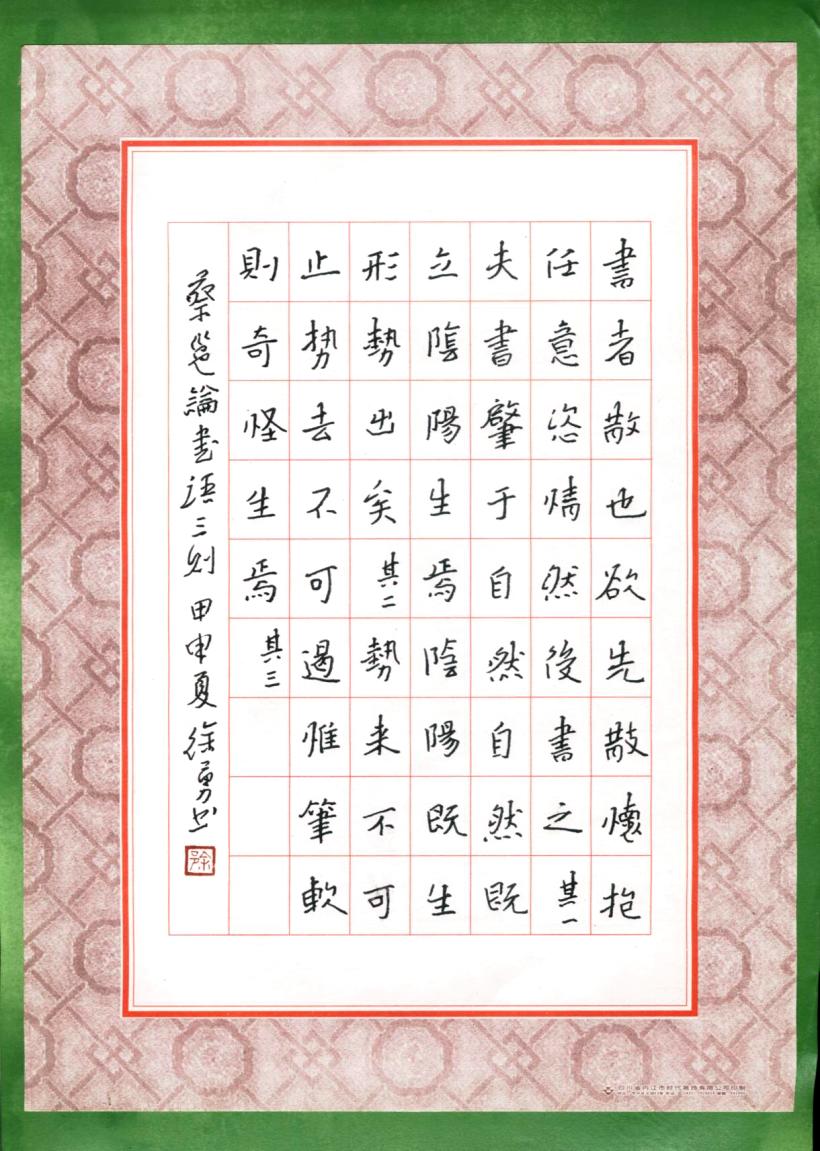 書者散也欲先散懷抱
任意恣情然後書之其一
夫書肇于自然自然既
立陰陽生焉陰陽既生
形勢出矣其二勢来不可
止势去不可遏惟筆軟
則奇怪生焉其三
蔡邕論书語三则 甲申夏 徐勇书
徐
四川省内江市时代装饰有限公司印制